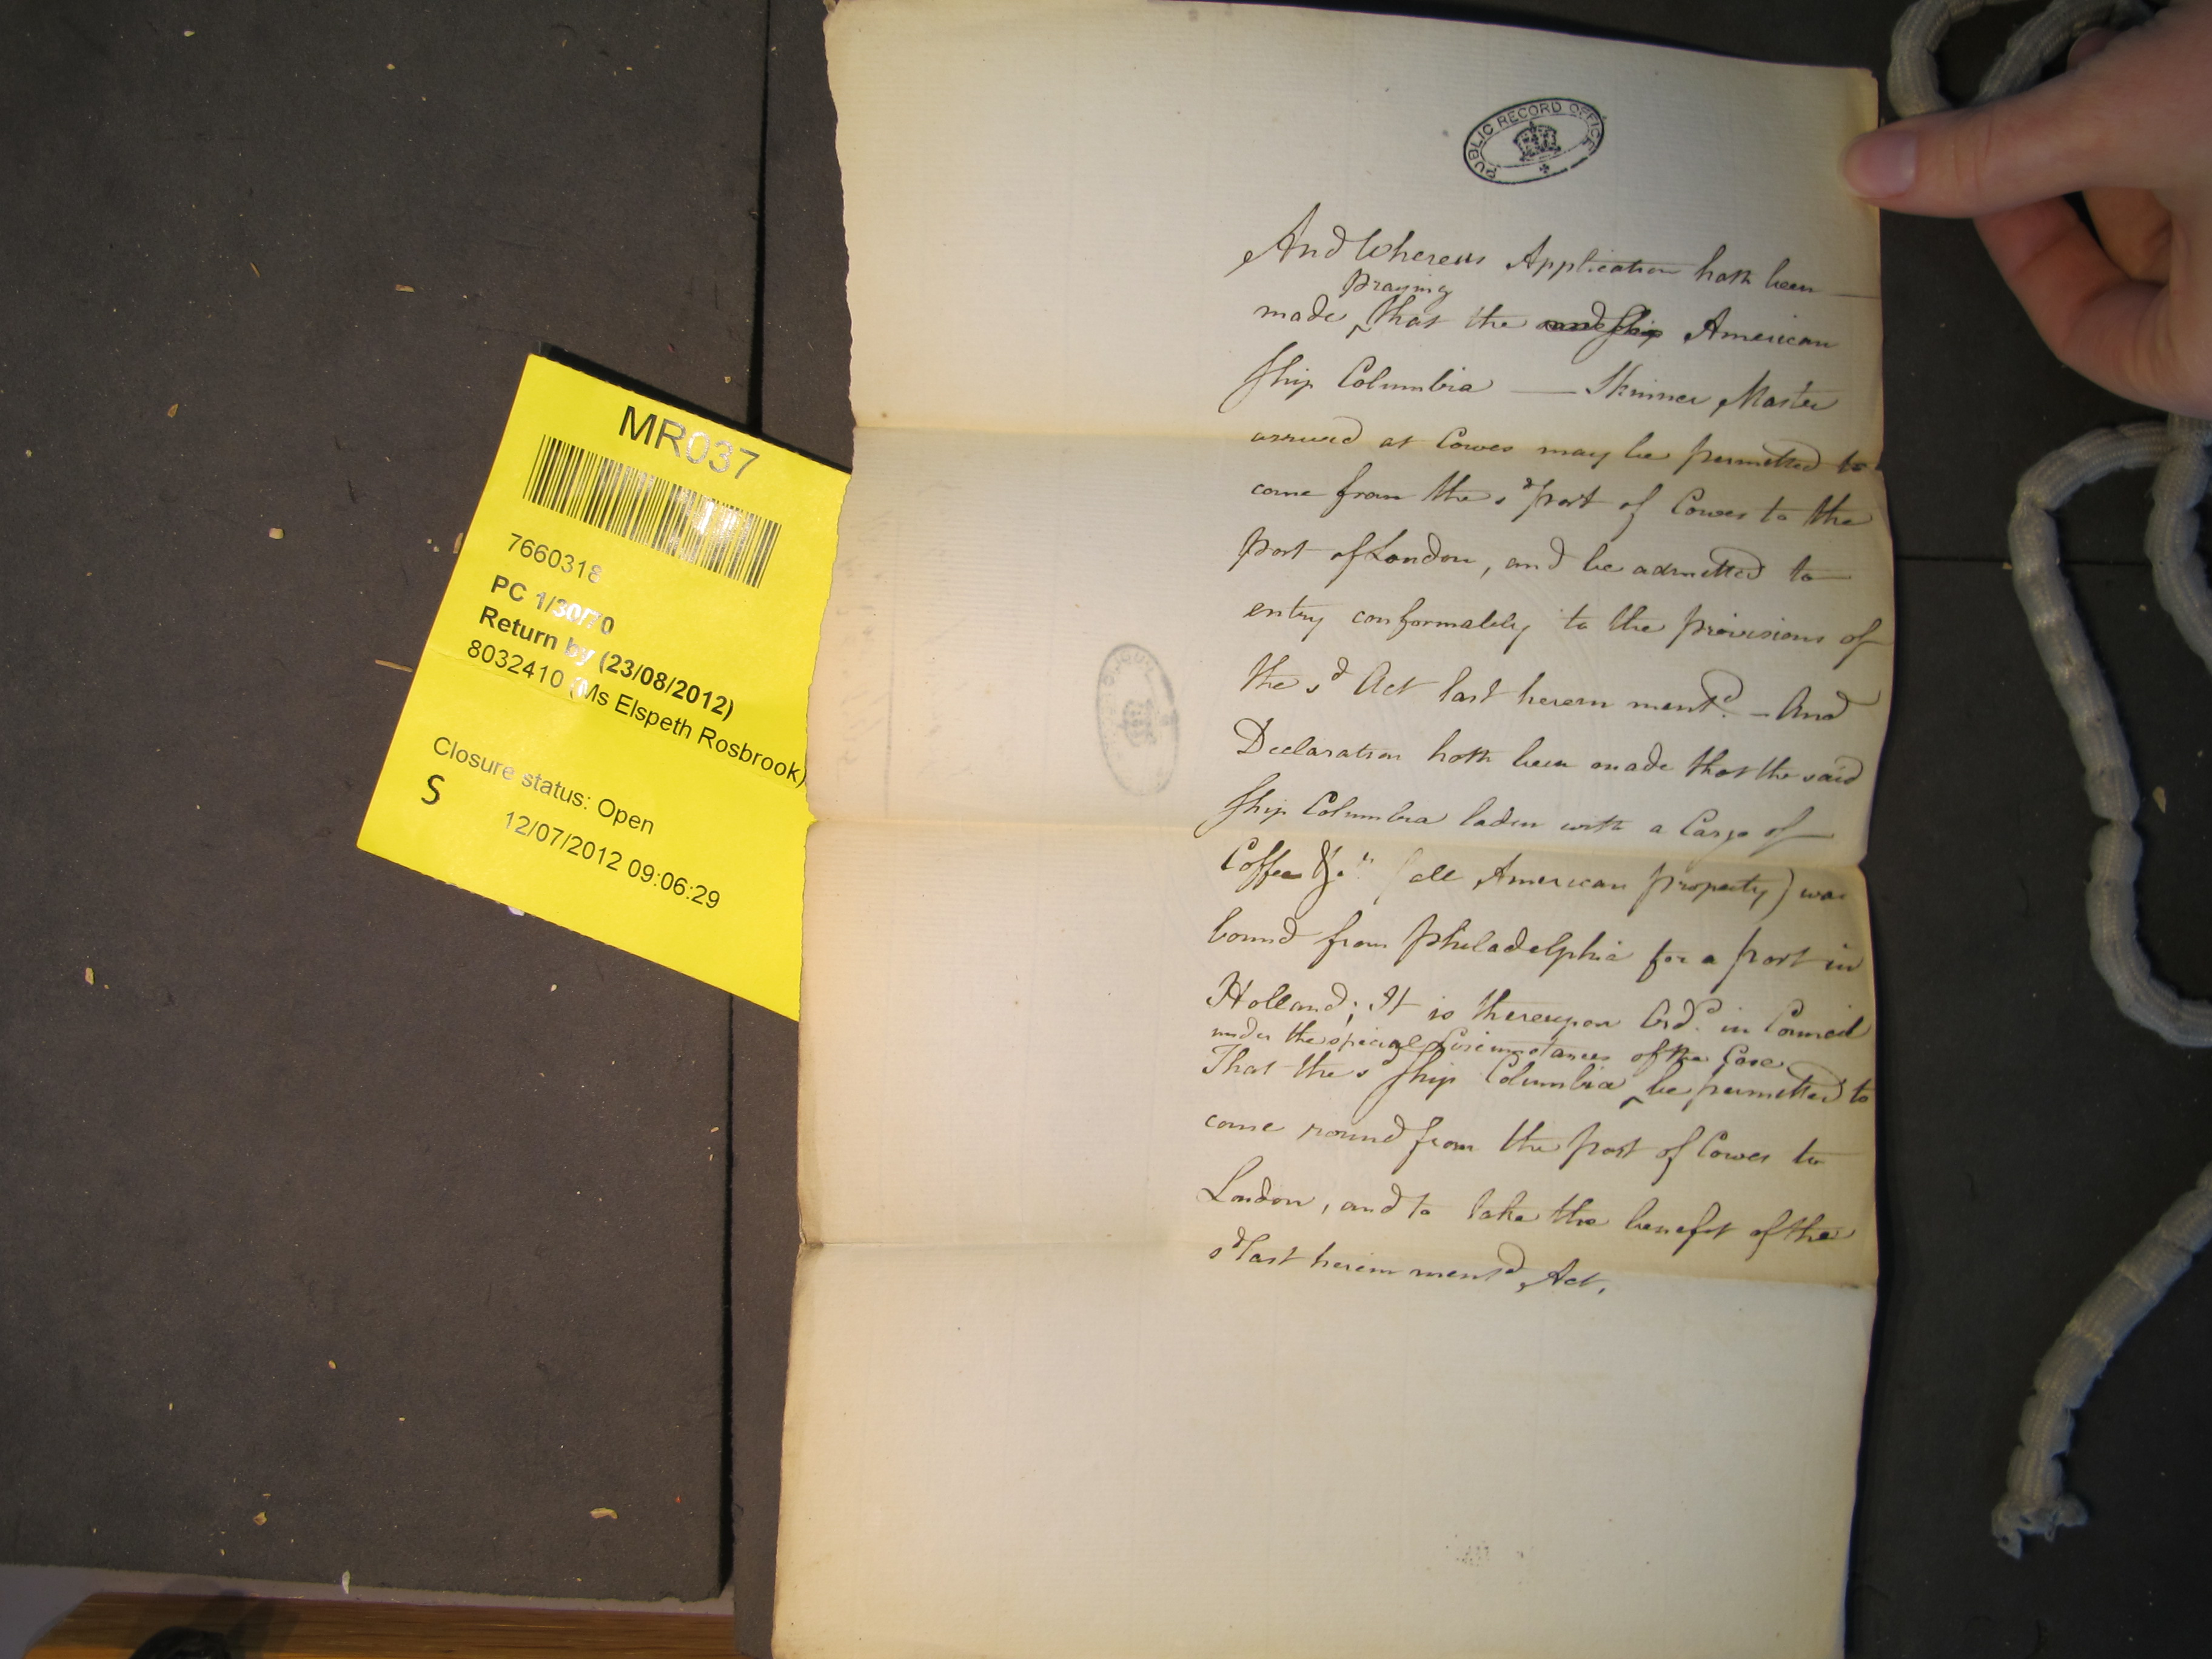 PUBLIC RECORD OFFICE
And Whereas Application hath been
praying
made ^ that the American
Ship Columbia — Skinner Master
arrived at Cowes may be permitted to
come from the sd Port of Cowes to the
Port of London, and be admitted to
entry conformably to the provisions of
the sd Act last herein mentd. - And
Declaration hath been made that the said
Ship Columbia laden with a Cargo of
Coffee &ca (all American property) was
bound from Philadelphia for a port in
Holland; It is thereupon Ord. in Council
under the special Circumstances of the Case
That the sd Ship Columbia ^ be permitted to
come round from the port of Cowes to
London, and to take the benefit of the
sd last herein mentd Act.
MR037
7660318
PC 1/30/70
Return by (23/08/2012)
8032410 (Ms Elspeth Rosbrook)
Closure status: Open
S
12/07/2012 09:06:29